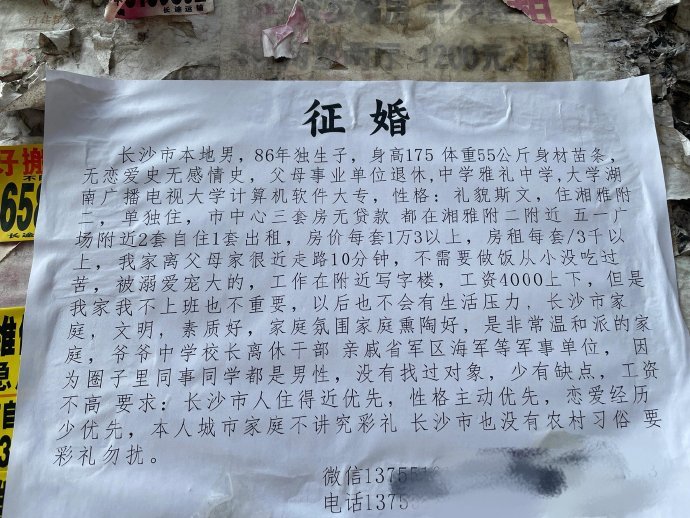 长途运输
1200元/月
征婚
长沙市本地男，86年独生子，身高175 体重55公斤身材苗条，
无恋爱史无感情史，父母事业单位退休,中学雅礼中学,大学湖
南广播电视大学计算机软件大专，性格：礼貌斯文，住湘雅附
二，单独住，市中心三套房无贷款 都在湘雅附二附近 五一广
场附近2套自住1套出租，房价每套1万3以上，房租每套/3千以
上，我家离父母家很近走路10分钟，不需要做饭从小没吃过
苦，被溺爱宠大的，工作在附近写字楼，工资4000上下，但是
我家我不上班也不重要，以后也不会有生活压力，长沙市家
庭，文明，素质好，家庭氛国家庭熏陶好，是非常温和派的家
庭，爷爷中学校长离休干部 亲戚省军区海军等军事单位，因
为圈子里同事同学都是男性，没有找过对象，少有缺点，工资
不高 要求：长沙市人住得近优先，性格主动优先，恋爱经历
少优先，本人城市家庭不讲究彩礼 长沙市也没有农村习俗 要
彩礼勿扰。
微信13755
电话1375
658
长途